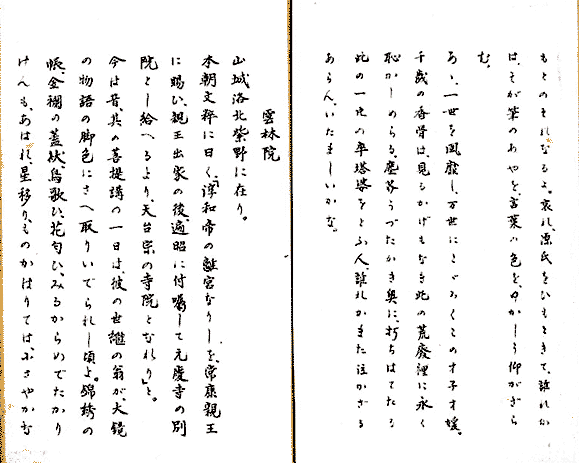 もとのそれなるよ。哀れ、源氏をひもときて、誰れか
は、そが筆のあやと、言葉の色を、ゆかしう仰がざら
む。
あゝ、一世を風靡し、万世にとゞろくこの才子才媛。
千歳の香骨は、見るかげもなき此の荒廃裡に永く
恥かしめらる。塵芥うづたかき奥に、朽ちはてたる
此の一片の卒塔婆をとふ人誰れかまた泣かざる
あらん。いたましいかな。
雲林院
山城洛北紫野に在り。
本朝文粋に曰く、「淳和帝の離宮なりしを、常康親王
に賜ひ、親王出家の後、遍昭に付嘱して元慶寺の別
院とし給へるより、天台宗の寺院となれり」と。
今は昔、其の菩提講の一日は、彼の世継の翁が、大鏡
の物語の脚色にさへ取りいでられし頃よ。錦綉の
帳、金襴の蓋、鳥歌ひ、花匂ひ、みるからめでたかり
けんも、あはれ、星移り、ものかはりては、ぶさやかな